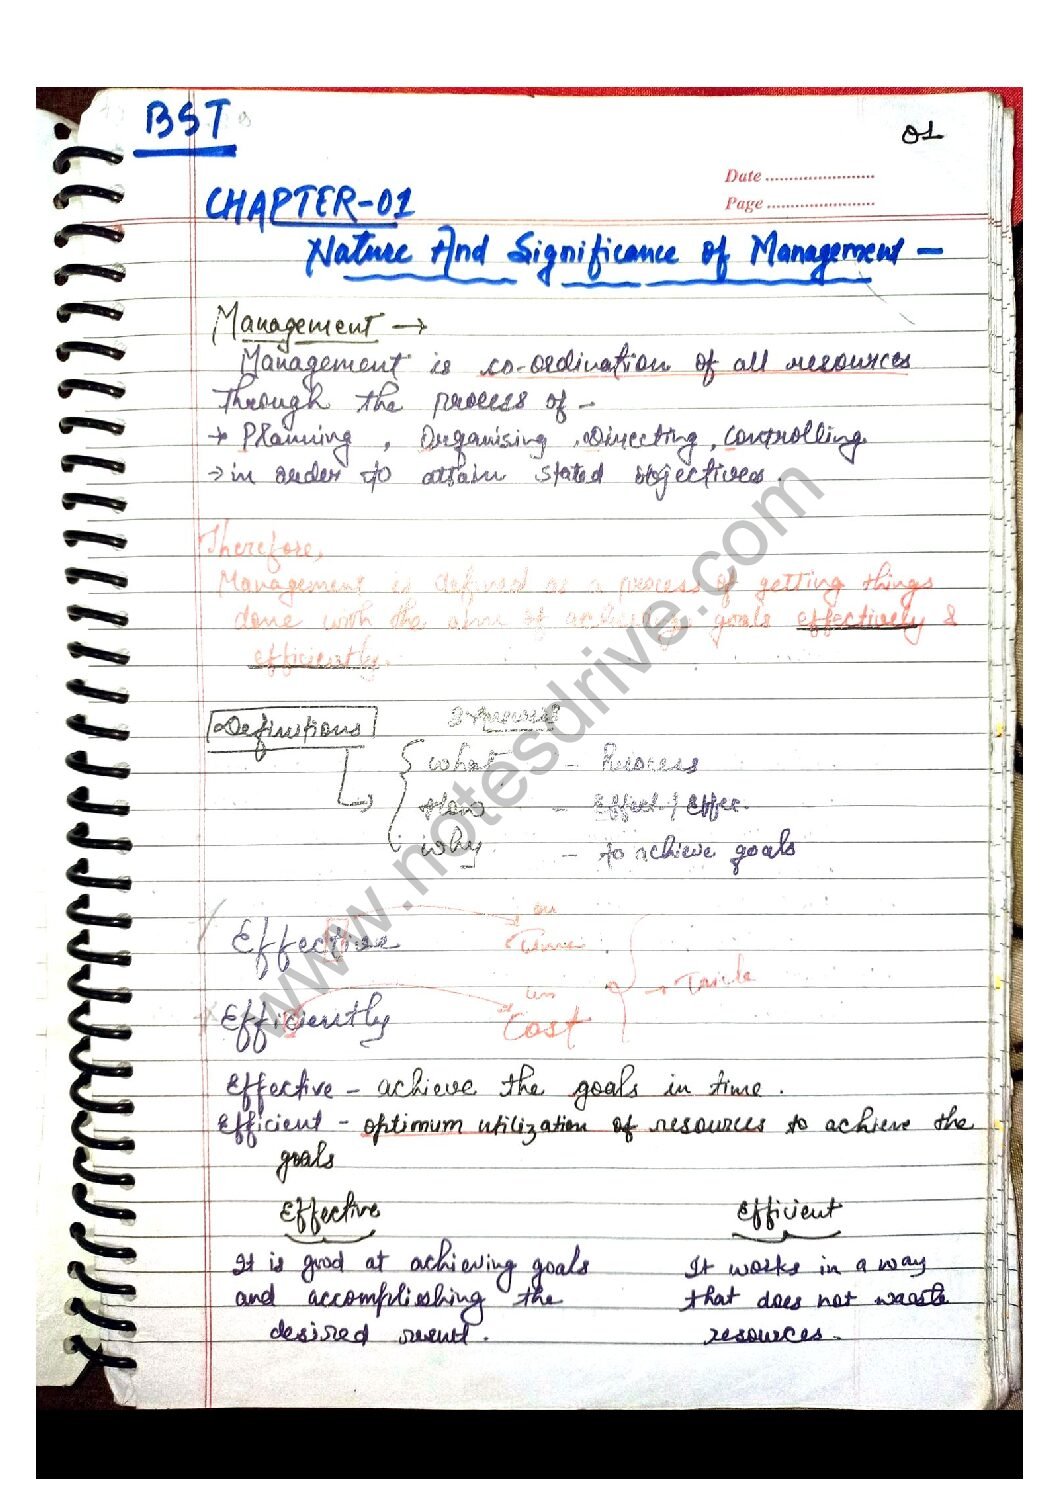 BST
01
Date ........................
Page ........................
CHAPTER-01
Nature And Significance of Management -
Management →
Management is co-ordination of all resources
through the process of -
→ Planning, Organising, Directing, Controlling
→ in order to attain stated objectives.
Therefore,
Management is defined as a process of getting things
done with the aim of achieving goals effectively &
efficiently.
Definitions
what - Process
How - Effect. / Effec.
why - to achieve goals
on
Effective Time
Efficiently Cost
→ Trick
Effective - achieve the goals in time.
Efficient - optimum utilization of resources to achieve the
goals
Effective Efficient
It is good at achieving goals It works in a way
and accomplishing the that does not waste
desired result. resources.
www.notesdrive.com